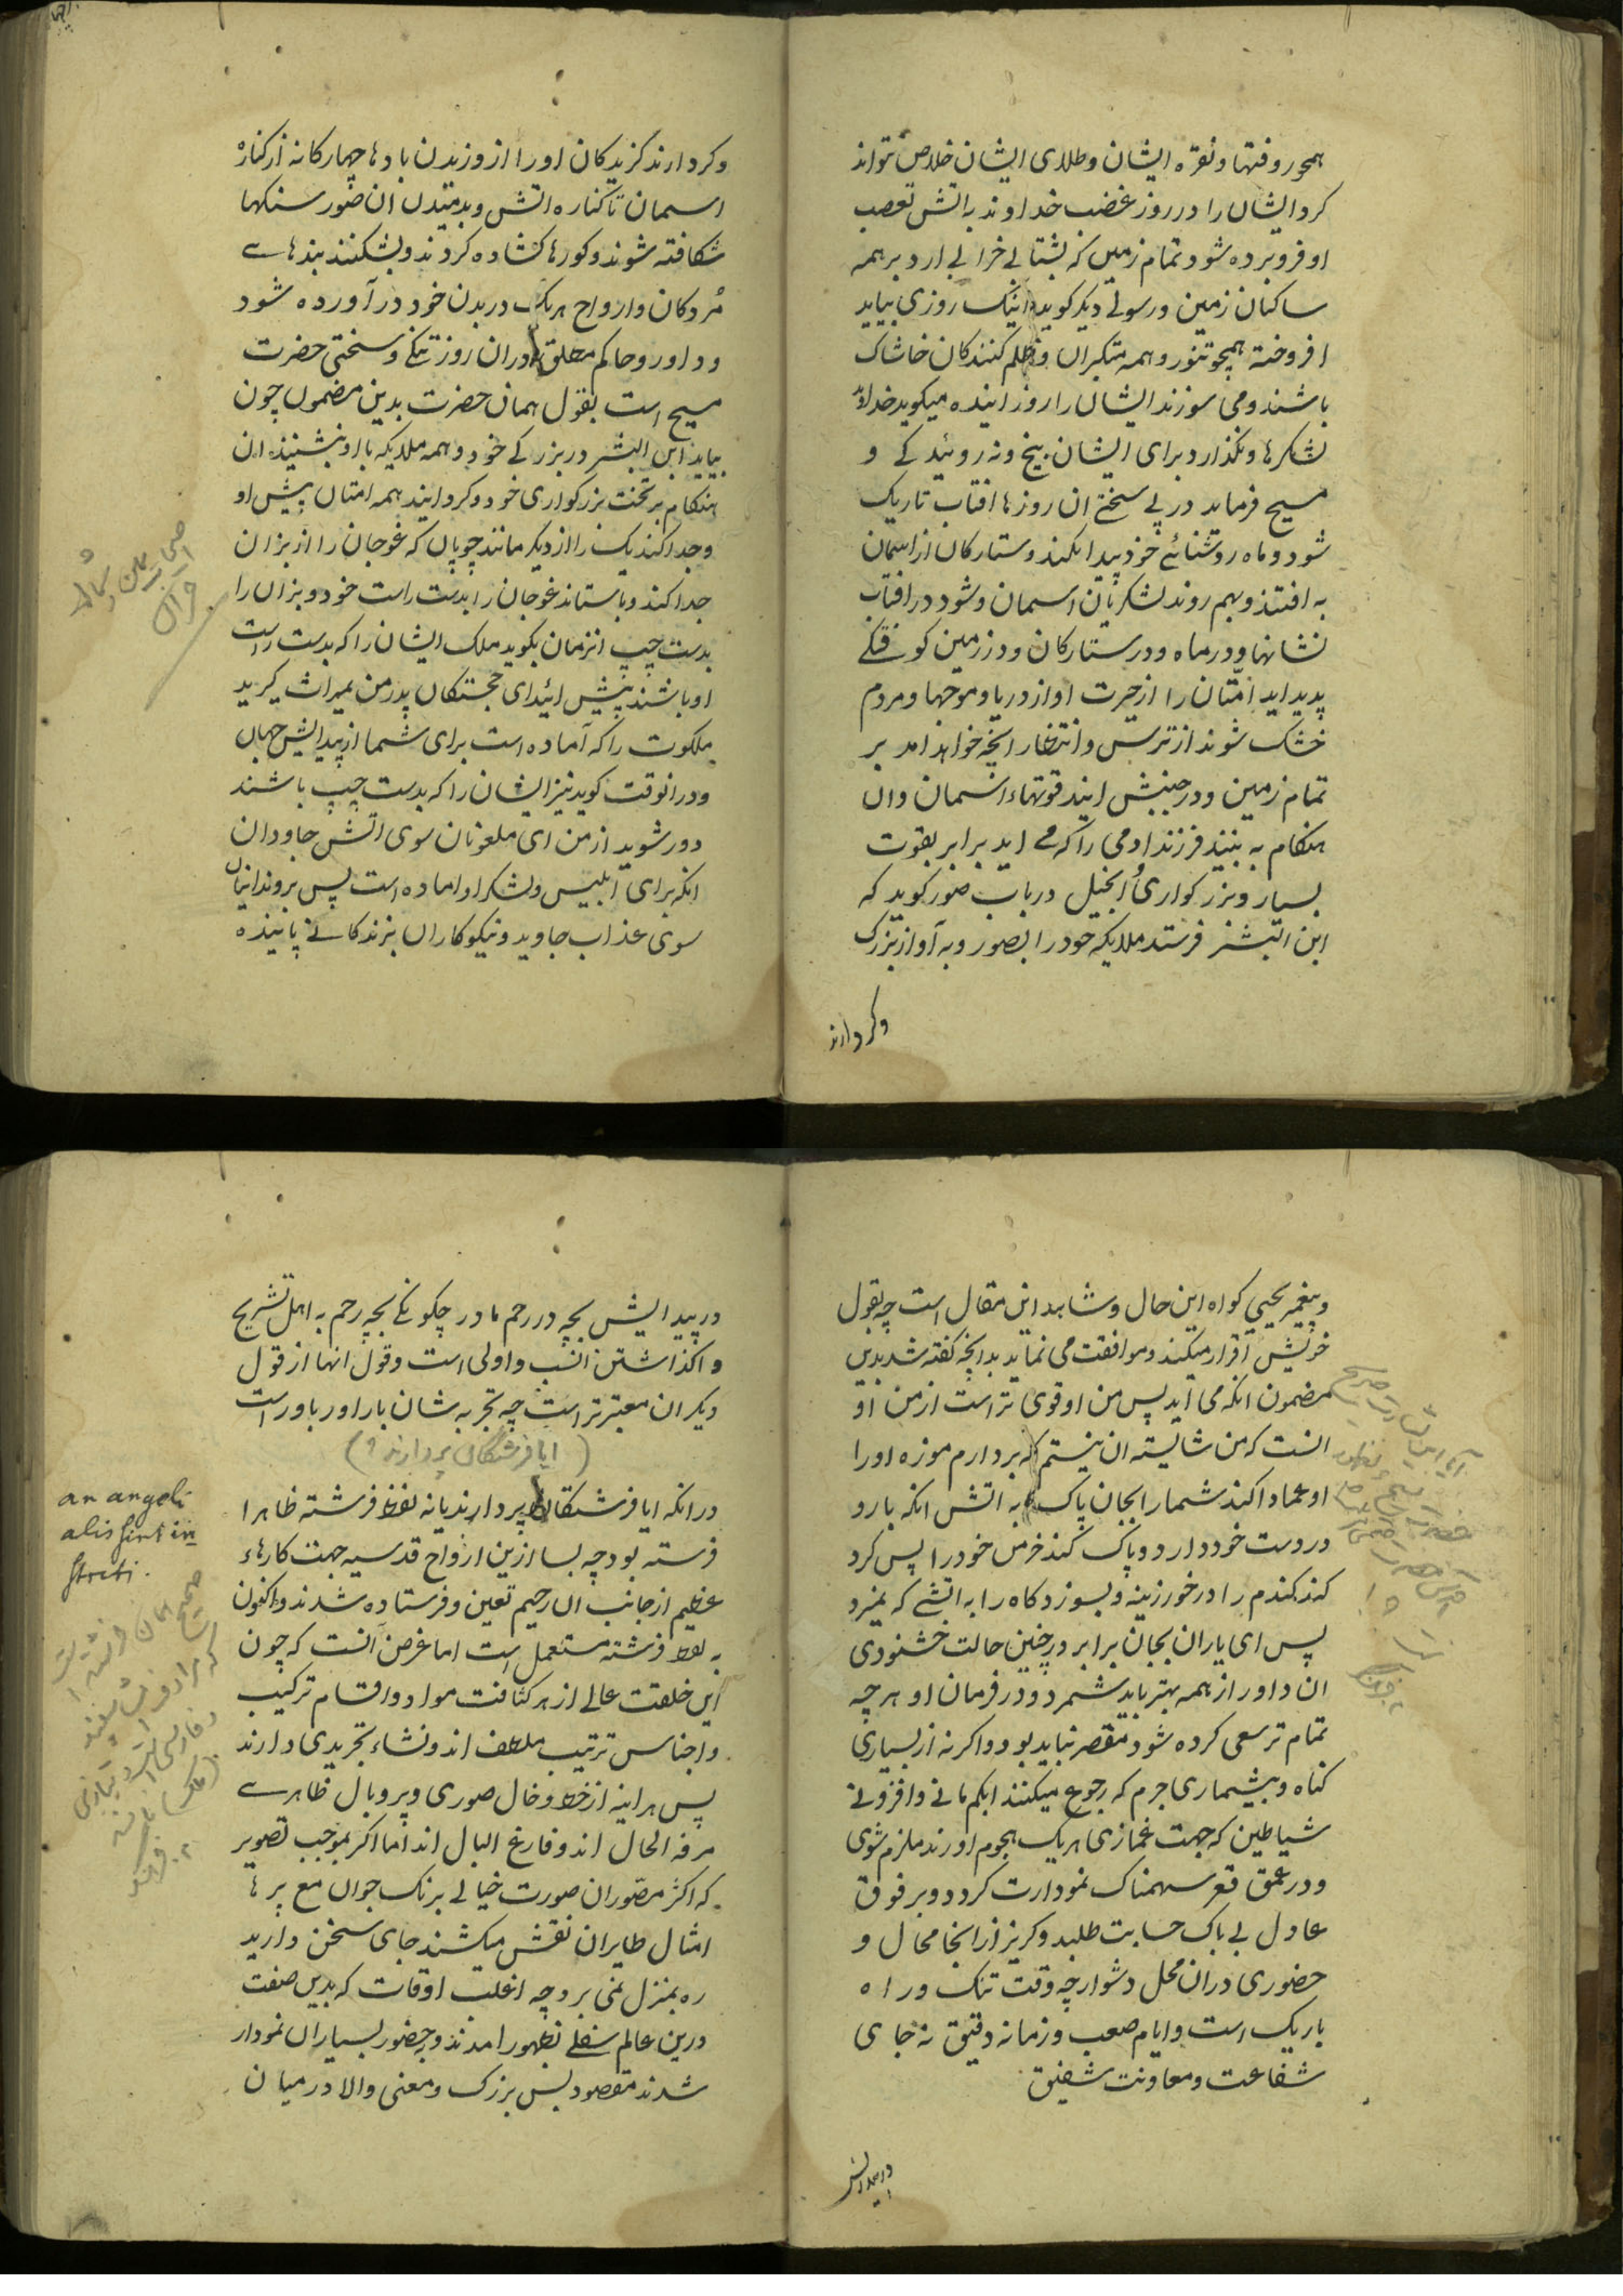 همچو روفتها و نقره ایشان و طلای ایشان خلاص نتواند
کرد ایشان را در روز غضب خداوند به اتش تعصب
او فرو برده شود تمام زمین که بشتابی خرابی ارد بر همه
ساکنان زمین و رسولی دیکر کوید اینک روزی بیاید
افروخته همچو تنور و همه متکبران و ظلم کنندکان خاشاک
باشند و می سوزند ایشان را روز اینده میکوید خداوند
لشکرها و نکذارد برای ایشان بیخ و نه روئیدکی و
مسیح فرماید در پی سختی ان روزها افتاب تاریک
شود و ماه روشنائی خود پیدا نکند و ستارکان از اسمان
به افتند و بهم روند لشکریان اسمان و شود در افتاب
نشانها و در ماه و در ستارکان و در زمین کوفتکی
پدید اید امتان را از حیرت اواز دریا و موجها و مردم
خشک شوند از ترس و انتظار انچه خواهد امد بر
تمام زمین و در جنبش ایند قوتهاء اسمان و ان
هنکام به بینند فرزند ادمی را که می اید بر ابر بقوت
بسیار و بزرکواری انجیل در باب صور کوید که
ابن البشر فرستد ملایکه خود را بصور و به آواز بزرک
وکرد ارند
وکرد ارند کزیدکان اورا از وزیدن بادها چهارکانه از کناره
اسمان تا کناره اتش و بدمیدن ان صور سنکها
شکافته شوند و کورها کشاده کردند و بشکنند بندهای
مردکان و ارواح هریک در بدن خود در آورده شود
و داور و حاکم مطلق دران روز تنکی و سختی حضرت
مسیح است بقول همان حضرت بدین مضمون چون
بیاید ابن البشر در بزرکی خود و همه ملایکه با او بنشیند ان
هنکام بر تخت بزرکواری خود و کرد ایند همه امتان پیش او
و جدا کند یک را از دیکر مانند چوپان که غوجان را از بزان
جدا کند و باستاند غوجان را بدست راست خود و بزان را
بدست چپ انزمان بکوید ملک ایشان را که بدست راست
او باشند پیش ائید ای خجستکان پدر من بمیراث کیرید
ملکوت را که آماده است برای شما از پیدایش جهان
و در انوقت کوید نیز ایشان را که بدست چپ باشند
دور شوید از من ای ملعونان سوی اتش جاودان
انکه برای ابلیس و لشکر او اماده است پس بروند اینان
سوی عذاب جاوید و نیکوکاران بزندکانی پاینده
و پیغمبر یحیی کواه این حال و شاهد این مقال است چه بقول
خویش اقرار میکند و موافقت می نماید بدانچه کفته شد بدین
مضمون انکه می آید پس من او قوی تر است از من او
انست که من شایسته ان نیستم که بردارم موزه اورا
او عماد اکند شمارا بجان پاک به اتش انکه بارو
در دست خود دارد و پاک کند خرمن خود را پس کرد
کند کندم را در خور زینه و بسوزد کاه را به اتشی که نمیرد
پس ای یاران بجان برابر در چنین حالت خشنودی
ان داور از همه بهتر باید شمرد و در فرمان او هرچه
تمام تر سعی کرده شود مقصر نباید بود و اکرنه از بسیاری
کناه و بیشماری جرم که رجوع میکنند
شیاطین که جهت غمازی هریک هجوم اورند ملزم شوی
و در عمق قعر سهمناک نمودارت کردد و بر فوق
عادل بی باک حسابت طلبد و کریز از انجا محال و
حضوری دران محل دشوار چه وقت تنک و راه
باریک است و ایام صعب و زمانه دقیق نه جای
شفاعت و معاونت شفیق
در پیدایش
در پیدایش بچه در رحم مادر چکونکی بچه رحم به اهل تشریح
واکذاشتن انسب و اولی است و قول انها از قول
دیکران معتبر تر است چه تجربه شان باراور باور است
(ایا فرشتکان پر دارند؟)
در انکه ایا فرشتکان پر دارند یا نه لفظ فرشته ظاهرا
فرسته بود چه بسا ازین ارواح قدسیه جهت کارهاء
عظیم از جانب ان رحیم تعین و فرستاده شدند و اکنون
به لفظ فرشته مستعمل است اما غرض آنست که چون
این خلقت عالی از هر کثافت مواد و اقسام ترکیب
و اجناس ترتیب ملطف اند و نشاء تجریدی دارند
پس هراینه از خط و خال صوری و پر و بال ظاهری
مرفه الحال اند و فارغ البال اند اما اکر بموجب تصویر
که اکثر مصوران صورت خیالی برنک جوان مع پرها
امثال طایران نقش میکشند جای سخن دارید
ره بمنزل نمی برد چه اغلب اوقات که بدین صفت
درین عالم سفلی بظهور امدند و بحضور بسیاران نمودار
شدند مقصود بس بزرک و معنی والا در میان
an angeli
alis sint in
structi.